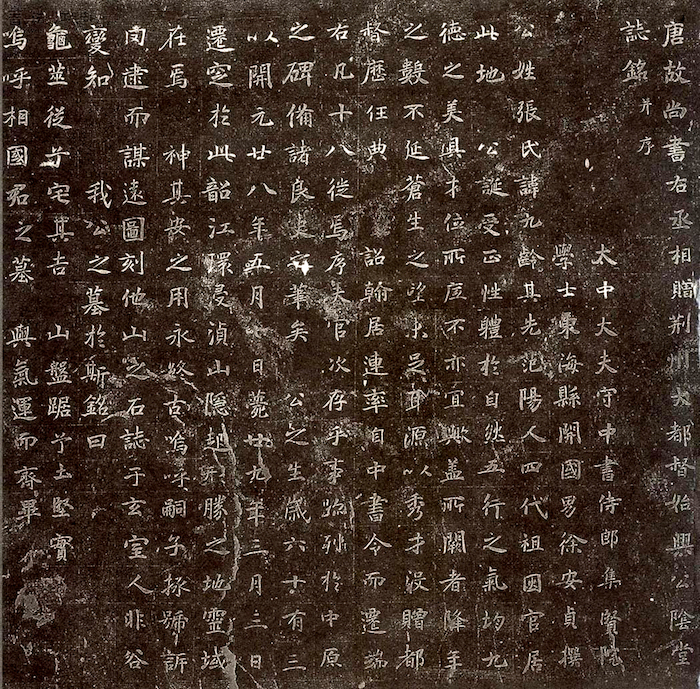 唐故尚書右丞相贈荊州大都督始興公陰堂
誌銘并序
太中大夫守中書侍郎集賢院
學士東海縣開國男徐安貞撰
公姓張氏諱九齡其先范陽人四代祖因官居
此地 公誕受正性體於自然五行之氣均九
德之美具才位所底不亦宜歟蓋所闕者降年
之數不延蒼生之望未足耳源~以秀才沒贈都
督歷任典 詔翰居連率自中書令而遷端
右凡十八徙焉序夫官次存乎事跡列於中原
之碑備諸良史之筆矣 公之生歲六十有三
以開元廿八年五月 日薨廿九年三月三日
遷窆於此韶江環浸湞山隱起形勝之地靈域
在焉 神其安之用永終古嗚呼嗣子拯號訴
罔逮而謀遠圖刻他山之石誌于玄室人非谷
變知 我公之墓於斯銘曰
龜筮從兮宅其吉 山盤踞兮土堅實
嗚呼相國君之墓 與氣運而齊畢